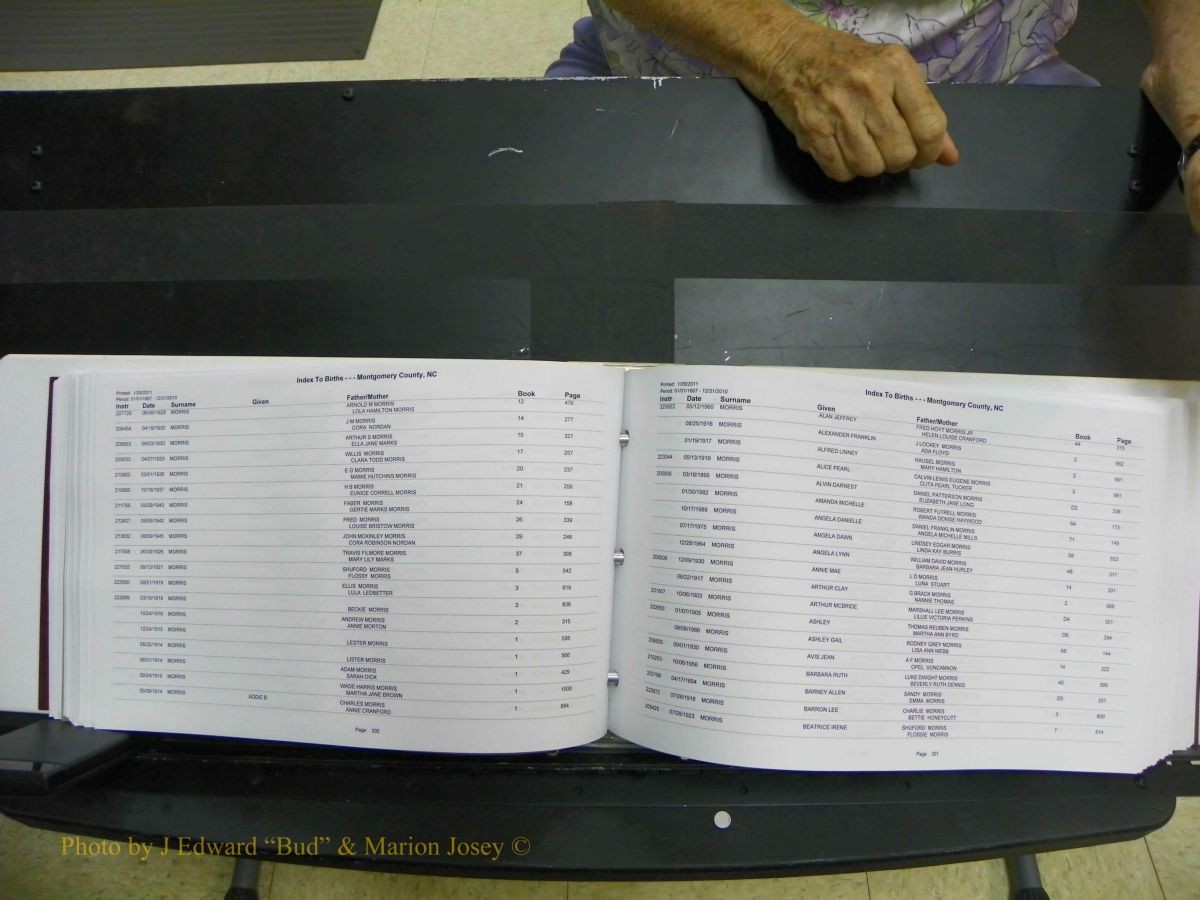 Index To Births - - - Montgomery County, NC
Printed: 1/28/2011
Period: 01/01/1867 - 12/31/2010
Instr Date Surname Given Father/Mother Book Page
MORRIS ARNOLD M MORRIS 12 476
LOLA HAMILTON MORRIS
04/19/1930 MORRIS J M MORRIS 14 277
CORA NORDAN
09/03/1930 MORRIS ARTHUR S MORRIS 15 327
ELLA JANE MARKS
04/07/1933 MORRIS WILLIS MORRIS 17 257
CLARA TODD MORRIS
03/01/1936 MORRIS E G MORRIS 20 237
MAMIE HUTCHINS MORRIS
10/16/1937 MORRIS H B MORRIS 21 256
EUNICE CORRELL MORRIS
MORRIS FABER MORRIS 24 158
GERTIE MARKS MORRIS
MORRIS FRED MORRIS 26 339
LOUISE BRISTOW MORRIS
08/09/1945 MORRIS JOHN MCKINLEY MORRIS 29 248
CORA ROBINSON NORDAN
MORRIS TRAVIS FILMORE MORRIS 37 398
MARY LILY MARKS
09/13/1921 MORRIS SHUFORD MORRIS 5 542
FLOSSY MORRIS
09/21/1916 MORRIS ELLIS MORRIS 3 619
LULA LEDBETTER
03/15/1918 MORRIS 3 836
BECKIE MORRIS
10/24/1916 MORRIS ANDREW MORRIS 2 315
ANNIE MORTON
12/24/1915 MORRIS 1 595
LESTER MORRIS
08/22/1914 MORRIS 1 560
LISTER MORRIS
08/31/1914 MORRIS ADAM MORRIS 1 429
SARAH DICK
09/04/1915 MORRIS WADE HARRIS MORRIS 1 1008
MARTHA JANE BROWN
05/09/1914 MORRIS ADDIE B CHARLES MORRIS 1 884
ANNIE CRANFORD
Page: 200
Index To Births - - - Montgomery County, NC
Printed: 1/28/2011
Period: 01/01/1867 - 12/31/2010
Instr Date Surname Given Father/Mother Book Page
223922 05/12/1960 MORRIS ALAN JEFFREY FRED HOYT MORRIS JR 44 315
HELEN LOUISE CRANFORD
08/25/1916 MORRIS ALEXANDER FRANKLIN J LOCKEY MORRIS 2 652
ADA FLOYD
01/19/1917 MORRIS ALFRED LINNEY HAUSEL MORRIS 2
MARY HAMILTON
223044 05/13/1919 MORRIS ALICE PEARL CALVIN LEWIS EUGENE MORRIS 3
CLITA PEARL TUCKER
03/18/1895 MORRIS ALVIN DARNEST DANIEL PATTERSON MORRIS D2
ELIZABETH JANE LONG
01/30/1982 MORRIS AMANDA MICHELLE ROBERT FUTRELL MORRIS 64 173
WANDA DENISE HAYWOOD
10/17/1989 MORRIS ANGELA DANIELLE DANIEL FRANKLIN MORRIS 71 149
ANGELA MICHELLE MILLS
07/17/1975 MORRIS ANGELA DAWN LINDSEY EDGAR MORRIS 58 553
LINDA KAY BURRIS
12/28/1964 MORRIS ANGELA LYNN WILLIAM DAVID MORRIS 48
BARBARA JEAN HURLEY
12/09/1930 MORRIS ANNIE MAE L D MORRIS 14
LUNA STUART
06/22/1917 MORRIS ARTHUR CLAY G BRACK MORRIS 2
NANNIE THOMAS
10/06/1903 MORRIS ARTHUR MCBRIDE MARSHALL LEE MORRIS D4
LILLIE VICTORIA PERKINS
01/07/1905 MORRIS ASHLEY THOMAS REUBEN MORRIS D6 294
MARTHA ANN BYRD
MORRIS ASHLEY GAIL RODNEY GREY MORRIS 68 144
LISA ANN WEBB
MORRIS AVIS JEAN A F MORRIS 14 322
OPEL VUNCANNON
10/06/1956 MORRIS BARBARA RUTH LUKE DWIGHT MORRIS 40
BEVERLY RUTH DENNIS
04/17/1894 MORRIS BARNEY ALLEN SANDY MORRIS D5 251
EMMA MORRIS
07/26/1918 MORRIS BARRON LEE CHARLIE MORRIS 3 909
BETTIE HONEYCUTT
205425 07/26/1923 MORRIS BEATRICE IRENE SHUFORD MORRIS 7 514
FLOSSIE MORRIS
Page: 201
Photo by J Edward “Bud” & Marion Josey ©